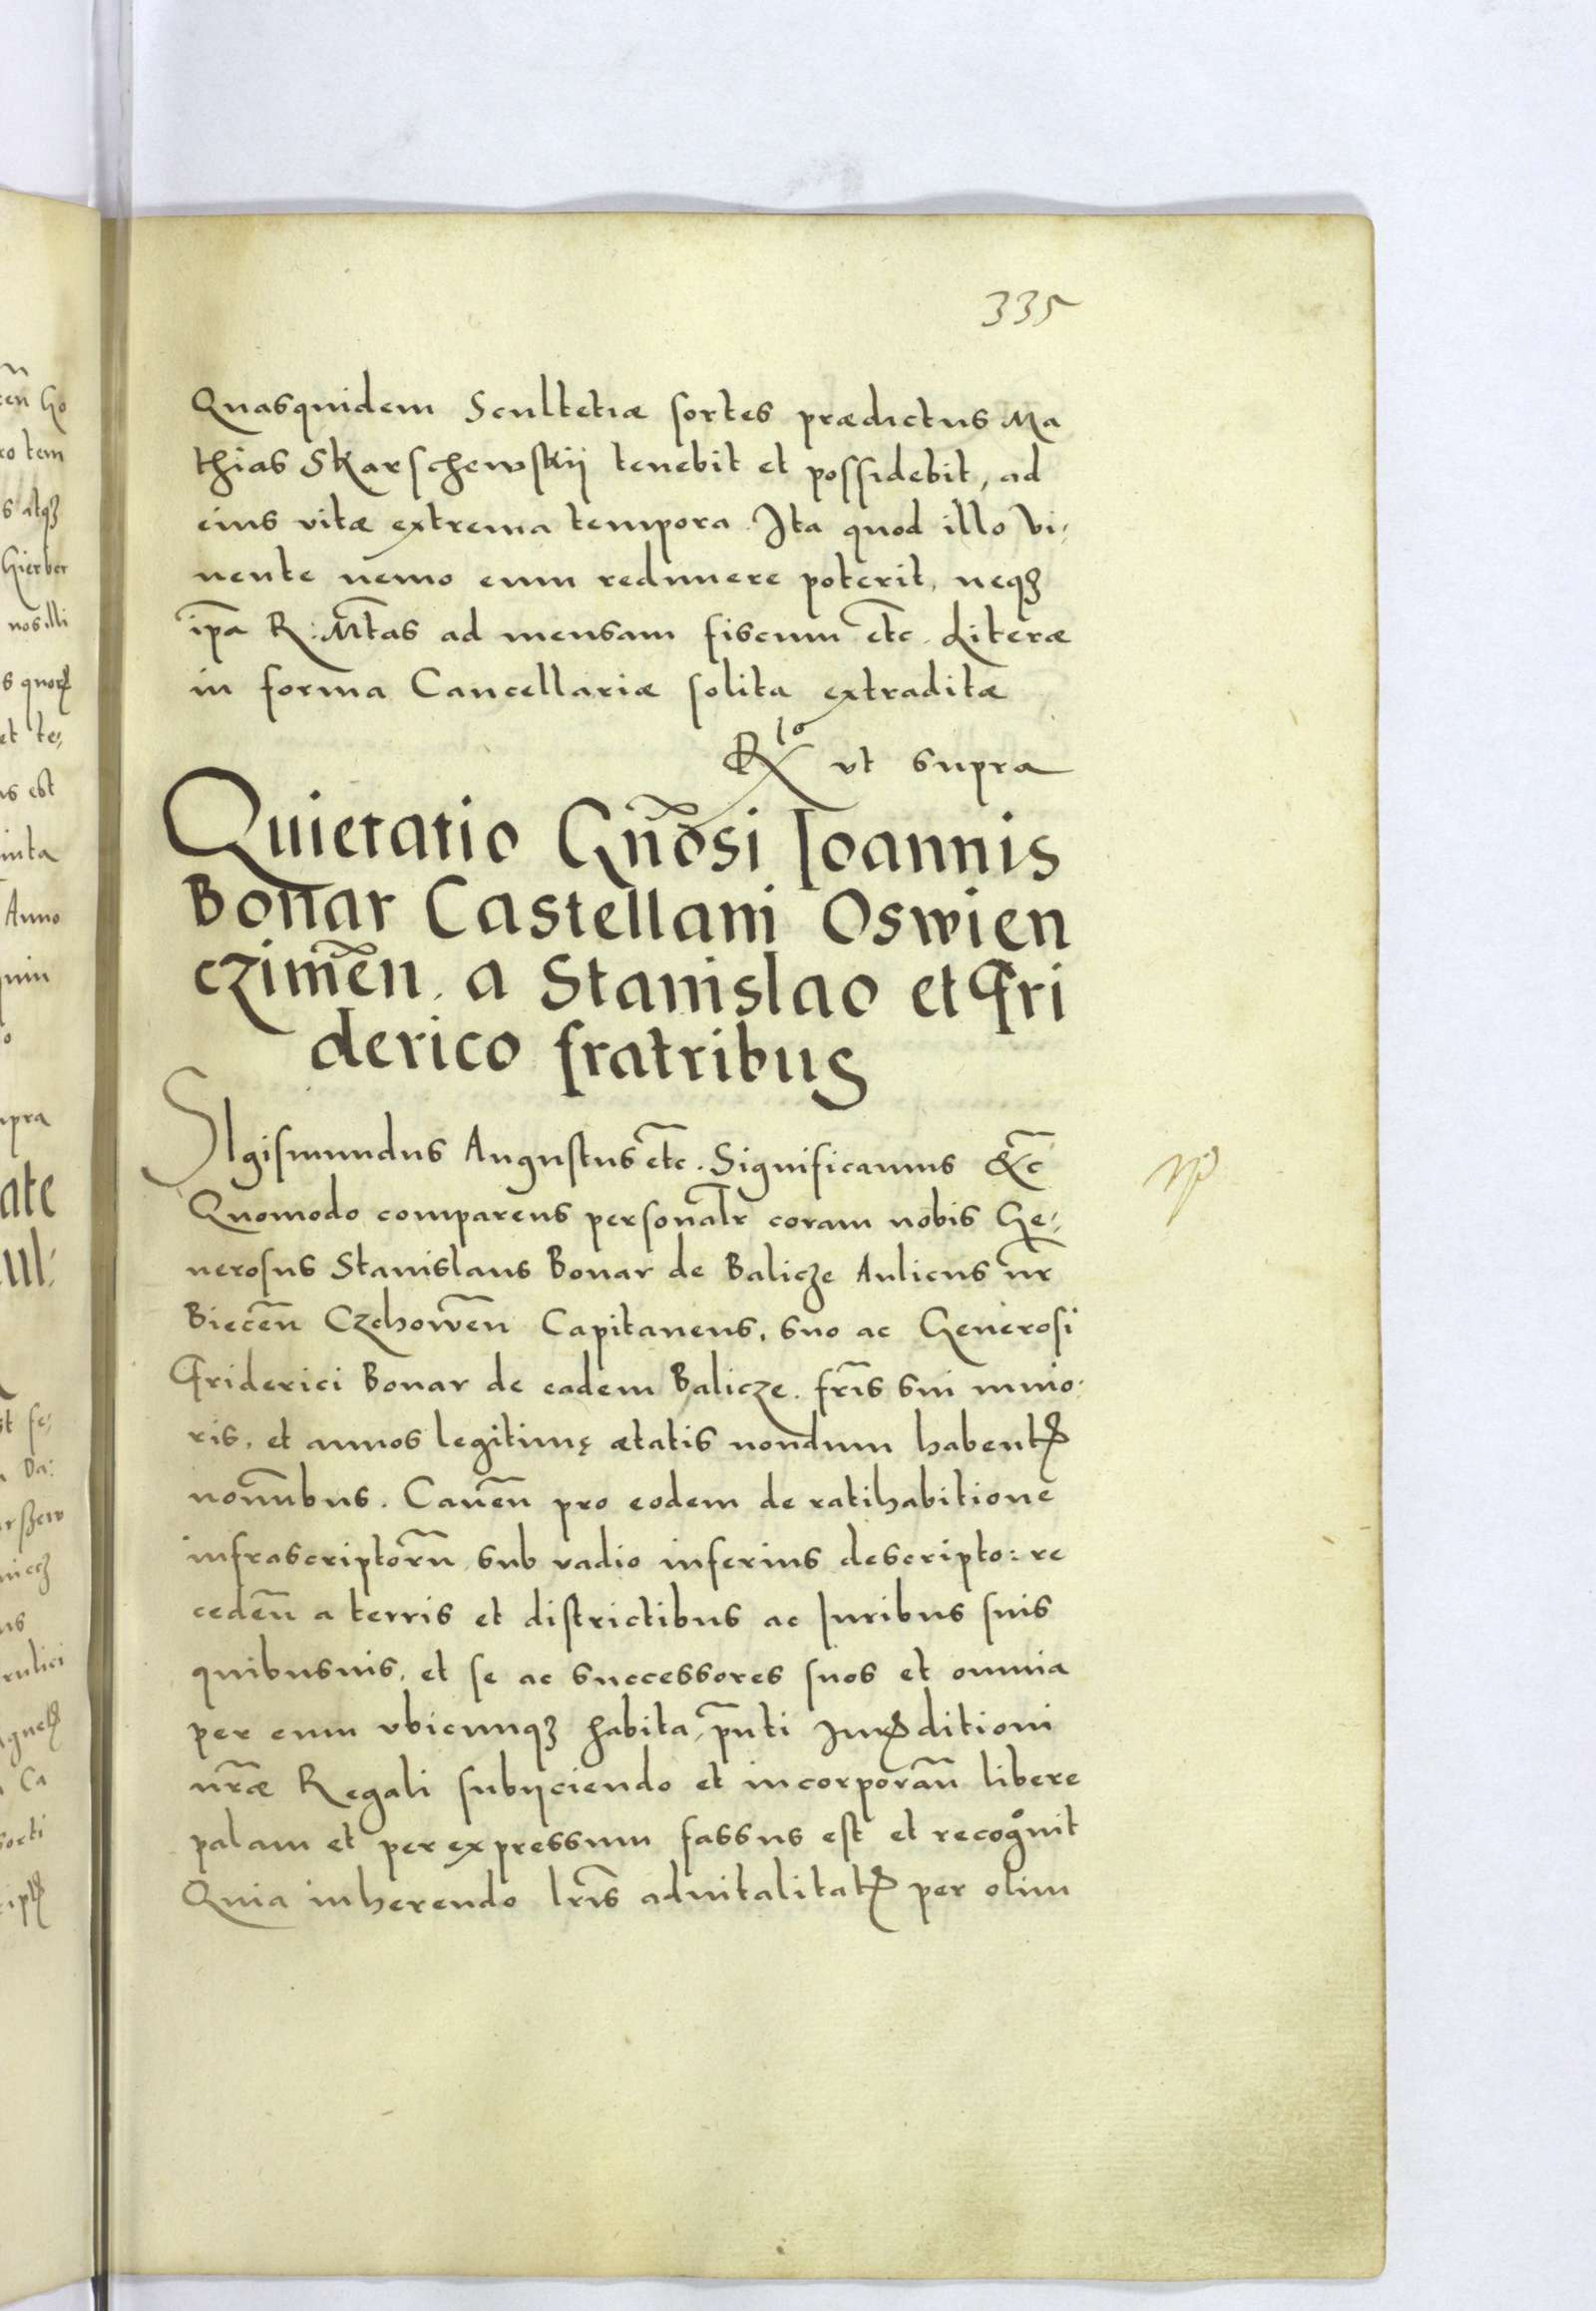 335
Quasquidem Scultetiæ sortes prædictus Ma
thias Skarschewskij tenebit et possidebit, ad
eius vitæ extrema tempora. Ita quod illo vi,
uente nemo eum redimere poterit, neqꝫ
ip̄a R: Mt̄as ad mensam fiscum et̄c. Literæ
in forma Cancellariæ solita extraditæ
R^lo ut supra
Quietatio Gn̄osi Ioannis
Bonar Castellani Oswien
czimēn. a Stanislao et Fri
derico fratribus
SIgismundus Augustus et̄c. Significamus &c̄
Quomodo comparens personal̄r coram nobis Ge,
nerosus Stanislaus Bonar de Balicze Aulicus nr̄
Biecēn Czchowēn Capitaneus, suo ac Generosi
Friderici Bonar de eadem Balicze. fr̄is sui mino:
ris, et annos legitimę ætatis nondum habentꝭ
nom̄nbus. Cauēn pro eodem de ratihabitione
infrascriptor̄u sub vadio inferius descripto: re
cedēn a terris et districtibus ac Iuribus suis
quibusuis, et se ac successores suos et omnia
per eum vbicunqꝫ habita, pn̄ti Iurꝭditioni
nr̄æ Regali subijciendo et incorporān libere
palam et per expressum fassus est et recog^onit
Quia inherendo lr̄is aduitalitatꝭ per olim